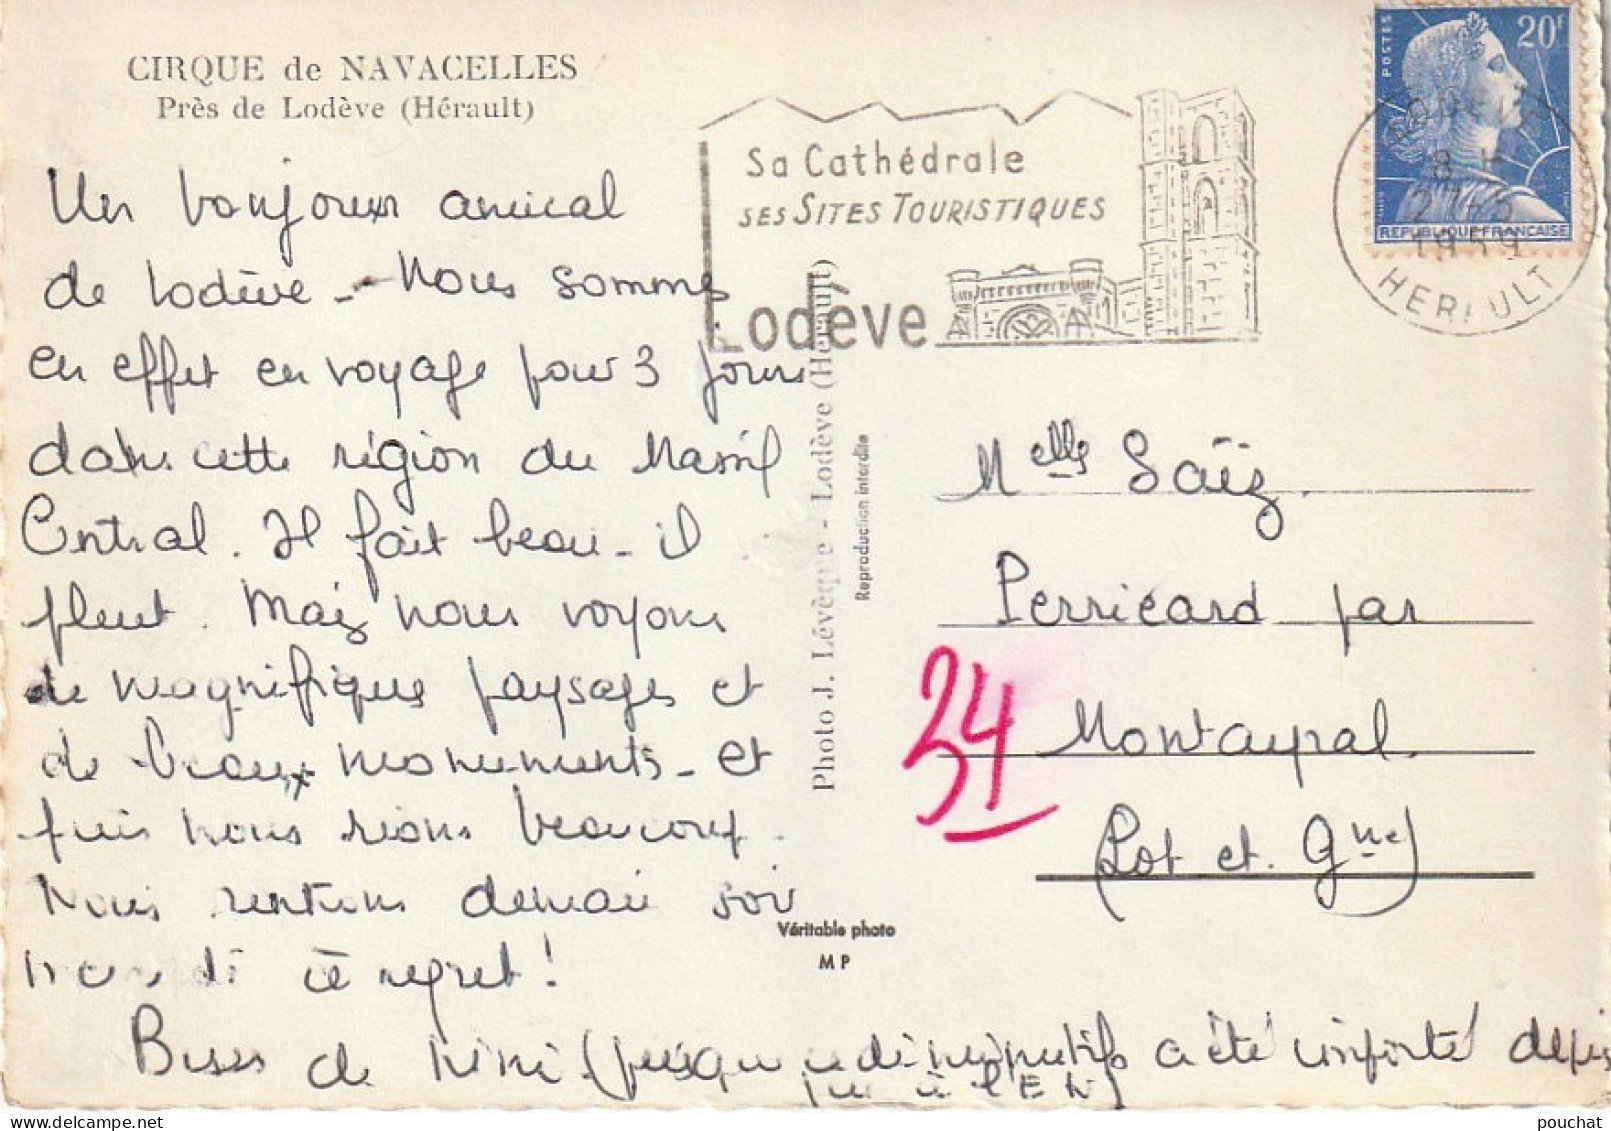 CIRQUE de NAVACELLES
Près de Lodève (Hérault)
Un bonjour amical
de Lodève - Nous sommes
en effet en voyage pour 3 jours
dans cette région du Massif
Central. Il fait beau - il
pleut. Mais nous voyons
de magnifiques paysages et
de beaux monuments - et
puis nous rions beaucoup.
Nous rentrons demain soir
à regret !
Bises de Kiki (puisque ce diminutif a été importé depuis
que à l'EN)
Sa Cathédrale
SES SITES TOURISTIQUES
Lodève
POSTES
20f
REPUBLIQUE FRANÇAISE
LODEVE
8 H
27-5
1959
HERAULT
Photo J. Lévêque - Lodève (Hérault)
Reproduction interdite
Melle Saïz
Perricard par
Montayral
(Lot et Gne)
34
Véritable photo
M P
pouchat